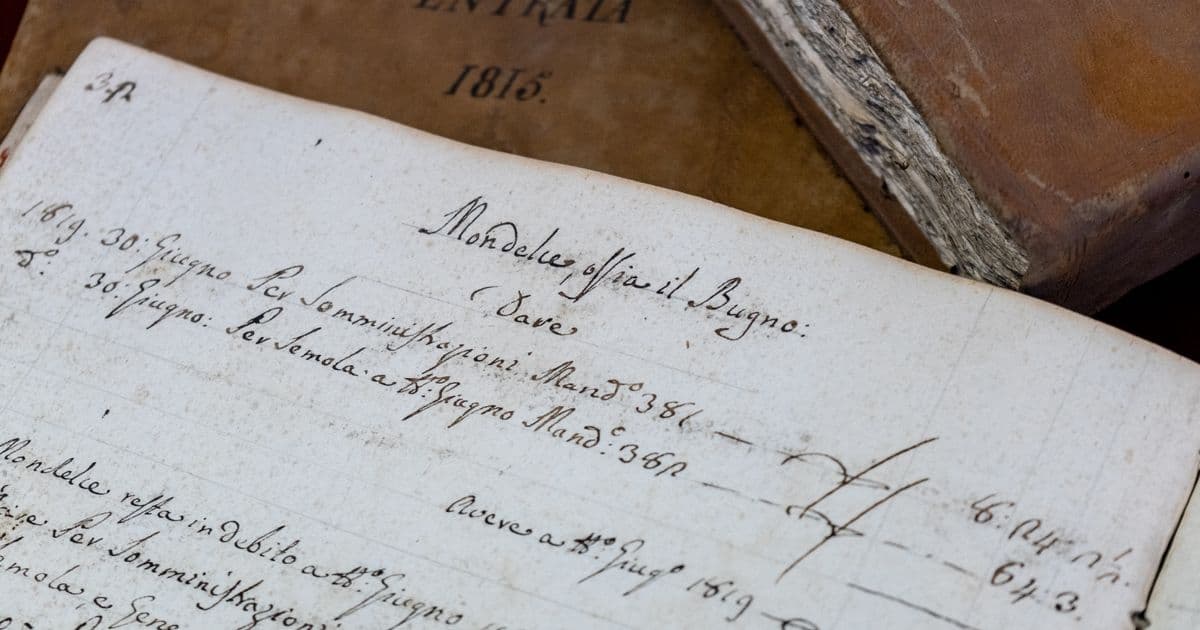 ENTRATA
1815.
32
Mondelce, ossia il Bugno:
Dare
1819. 30: Giugno Per Somministrazioni Mand.º 381
d.º 30. Giugno: Per Semola a tt.º Giugno Mand.º 382
8: 24
64: 3.
Avere a tt.º Giug.º 1819
Mondelce resta in debito a tt.º Giugno
Per Somministrazioni
Semola, e